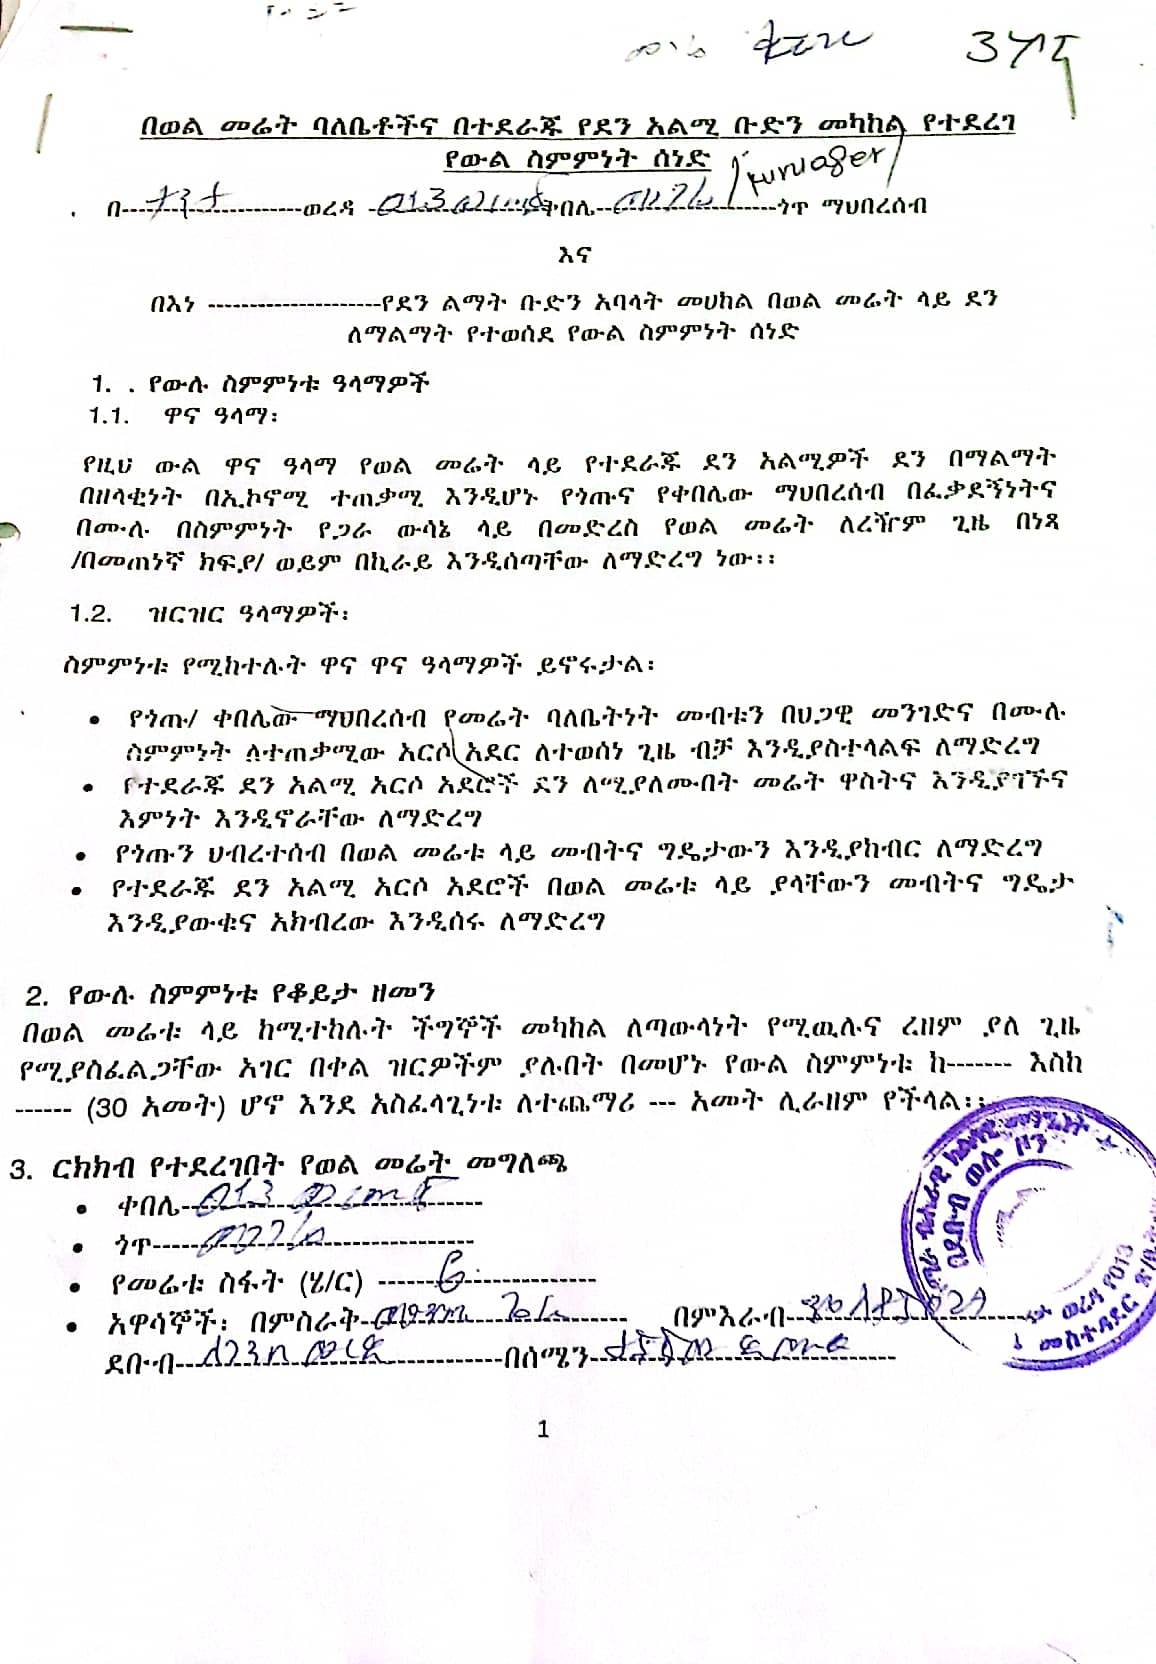 በወል መሬት ባለቤቶችና በተደራጁ የደን አልሚ ቡድን መካከል የተደረገ
የውል ስምምነት ሰነድ
በ----------------------ወረዳ ----------------------ቀበሌ----------------------ጎጥ ማህበረሰብ
እና
በእነ ---------------------የደን ልማት ቡድን አባላት መሀከል በወል መሬት ላይ ደን
ለማልማት የተወሰደ የውል ስምምነት ሰነድ
1. . የውሉ ስምምነቱ ዓላማዎች
1.1. ዋና ዓላማ፡
የዚህ ውል ዋና ዓላማ የወል መሬት ላይ የተደራጁ ደን አልሚዎች ደን በማልማት
በዘላቂነት በኢኮኖሚ ተጠቃሚ እንዲሆኑ የጎጡና የቀበሌው ማህበረሰብ በፈቃደኝነትና
በሙሉ በስምምነት የጋራ ውሳኔ ላይ በመድረስ የወል መሬት ለረዥም ጊዜ በነጻ
/በመጠነኛ ክፍያ/ ወይም በኪራይ እንዲሰጣቸው ለማድረግ ነው፡፡
1.2. ዝርዝር ዓላማዎች፡
ስምምነቱ የሚከተሉት ዋና ዋና ዓላማዎች ይኖሩታል፡
• የጎጡ/ ቀበሌው ማህበረሰብ የመሬት ባለቤትነት መብቱን በህጋዊ መንገድና በሙሉ
ስምምነት ለተጠቃሚው አርሶ አደር ለተወሰነ ጊዜ ብቻ እንዲያስተላልፍ ለማድረግ
• የተደራጁ ደን አልሚ አርሶ አደሮች ደን ለሚያለሙበት መሬት ዋስትና እንዲያገኙና
እምነት እንዲኖራቸው ለማድረግ
• የጎጡን ህብረተሰብ በወል መሬቱ ላይ መብትና ግዴታውን እንዲያከብር ለማድረግ
• የተደራጁ ደን አልሚ አርሶ አደሮች በወል መሬቱ ላይ ያላቸውን መብትና ግዴታ
እንዲያውቁና አክብረው እንዲሰሩ ለማድረግ
2. የውሉ ስምምነቱ የቆይታ ዘመን
በወል መሬቱ ላይ ከሚተከሉት ችግኞች መካከል ለጣውላነት የሚዉሉና ረዘም ያለ ጊዜ
የሚያስፈልጋቸው አገር በቀል ዝርዎችም ያሉበት በመሆኑ የውል ስምምነቱ ከ------- እስከ
------ (30 አመት) ሆኖ እንደ አስፈላጊነቱ ለተጨማሪ --- አመት ሊራዘም የችላል፡፡
3. ርክክብ የተደረገበት የወል መሬት መግለጫ
• ቀበሌ------------------------------------
• ጎጥ---------------------------------------
• የመሬቱ ስፋት (ሄ/ር) -------6-----------------
• አዋሳኞች፡ በምስራት-------------------------------- በምእራብ--------------------------------
ደቡብ----------------------------------------በሰሜን-------------------------------------
1